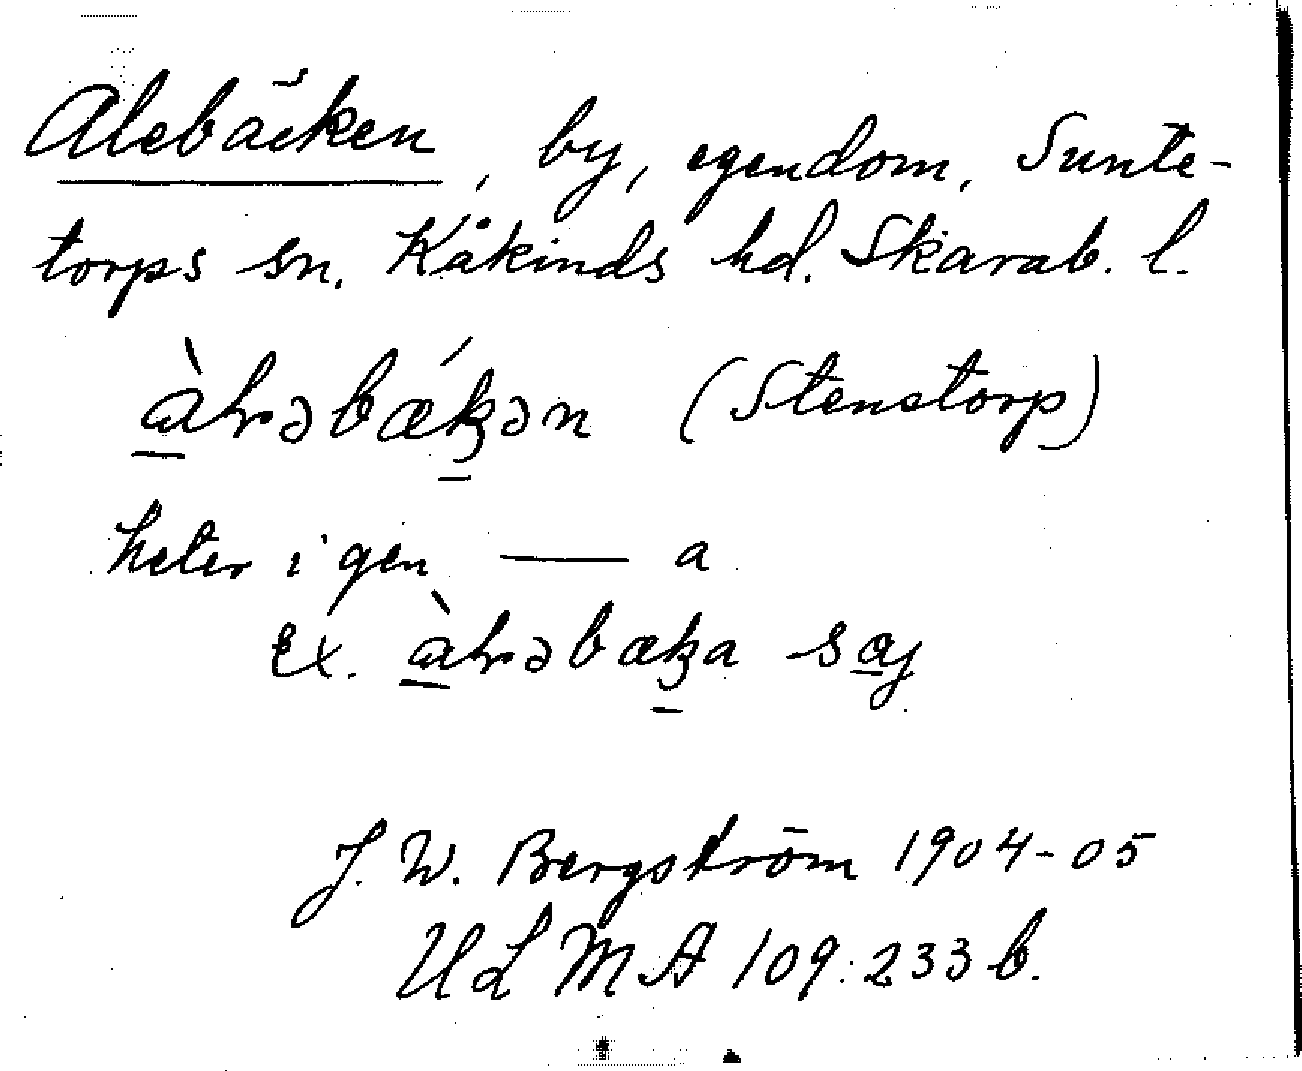 Alebäcken, by, egendom, Sunte-
torps sn. Kåkinds hd. Skarab. l.
àlrəbǽkən (Stenstorp)
heter i gen — a
Ex. àlrəbæka saj
J. W. Bergström 1904-05
ULMA 109:233 b.